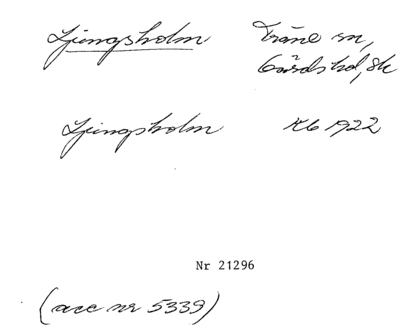 Ljungsholm Träne sn,
Gärds hd, Sk
Ljungsholm Kb 1922
Nr 21296
(acc nr 5339)